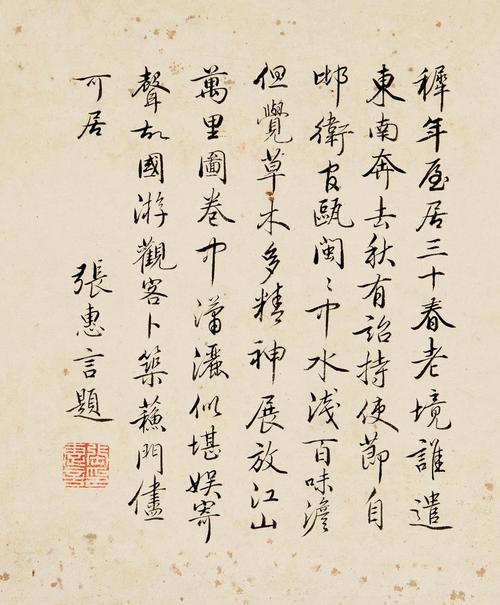 穉年屋居三十春老境誰遣
東南奔去秋有詔持使節自
邶衛官甌閩〻中水淺百味澹
但覺草木多精神展放江山
萬里圖卷中瀟灑似堪娛寄
聲故國游觀客卜築蘓門儘
可居
張惠言題